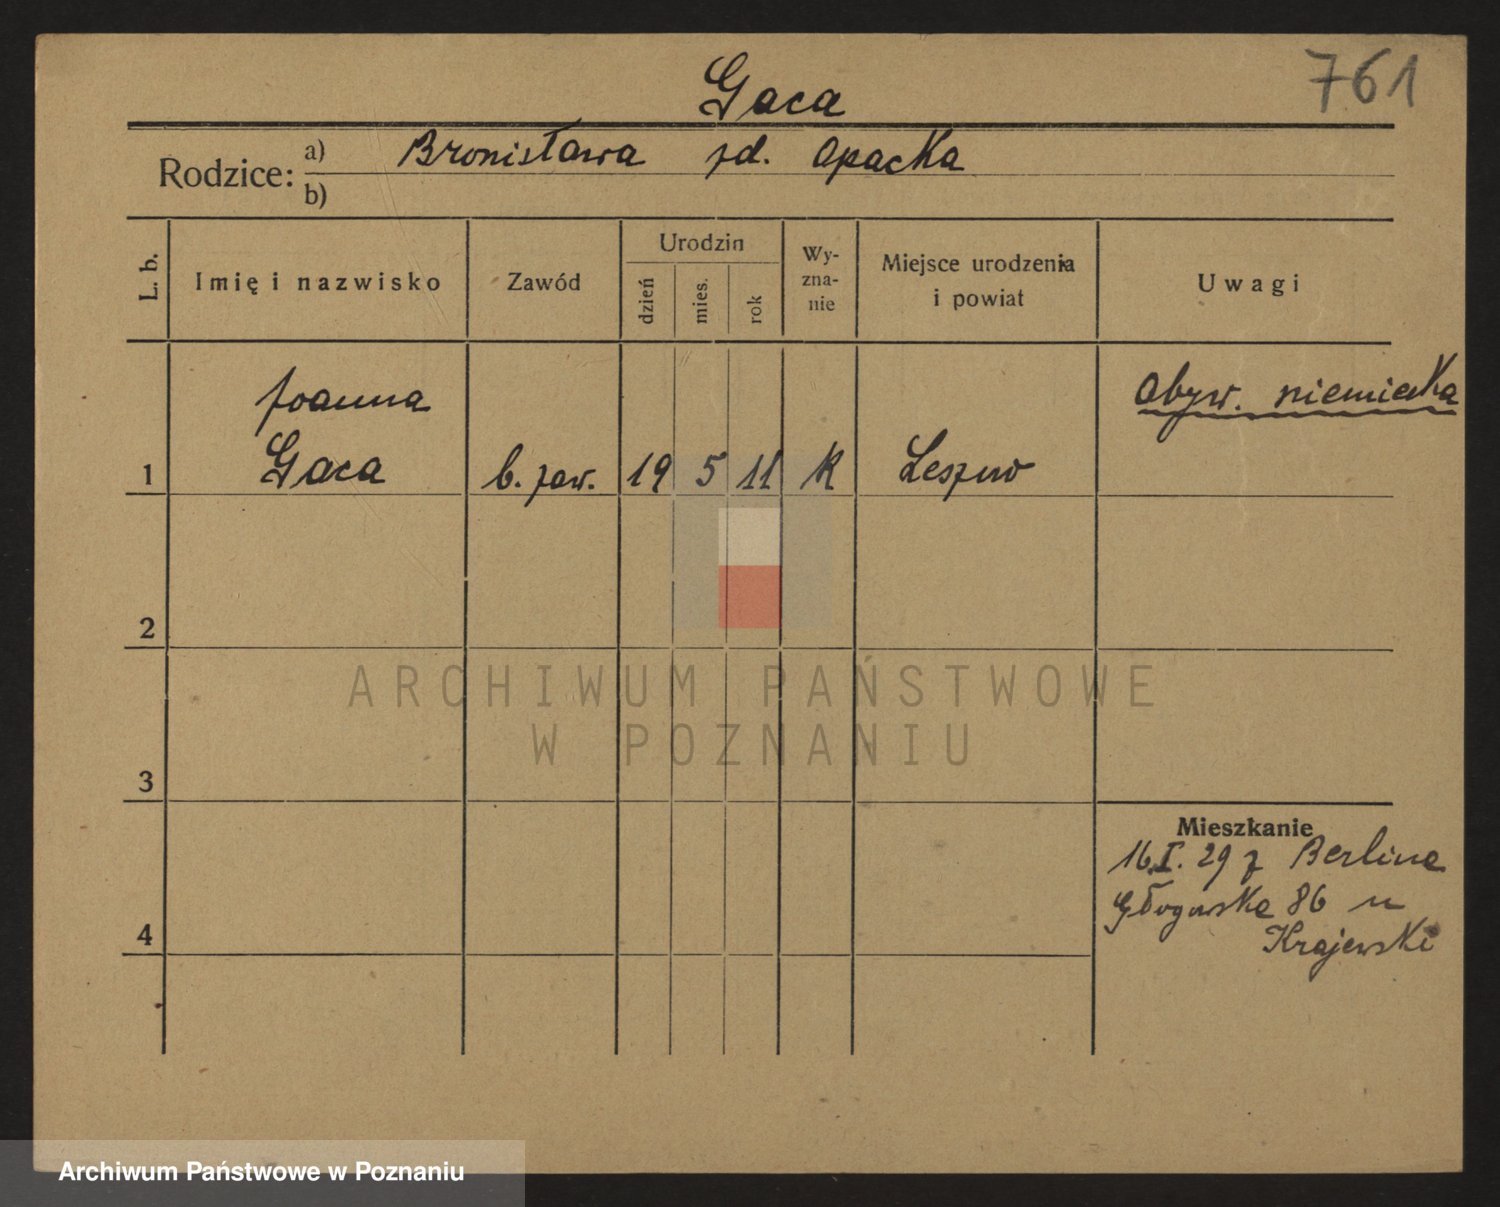 761
Gaca
Rodzice: a) Bronisława zd. Opacka
b)
L. b.
Imię i nazwisko
Zawód
Urodzin
dzień
mies.
rok
Wy-
zna-
nie
Miejsce urodzenia
i powiat
Uwagi
Joanna
Obyw. niemiecka
1 Gaca b. zaw. 19 5 11 K
2
ARCHIWUM PAŃSTWOWE
W POZNANIU
3
Mieszkanie
16.I.29 z Berlina
Głogowska 86 u
4
Krajewski
Archiwum Państwowe w Poznaniu